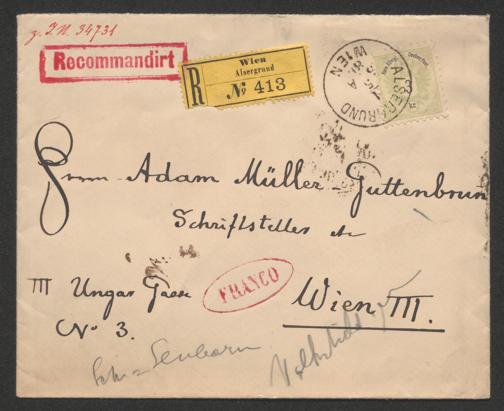 z. I.N. 34731
Recommandirt
Wien
Alsergrund
R № 413
ALSERGRUND
WIEN
Herrn Adam Müller-Guttenbrunn
Schriftsteller etc
III Ungar Gasse
No 3.
FRANCO
Wien III.